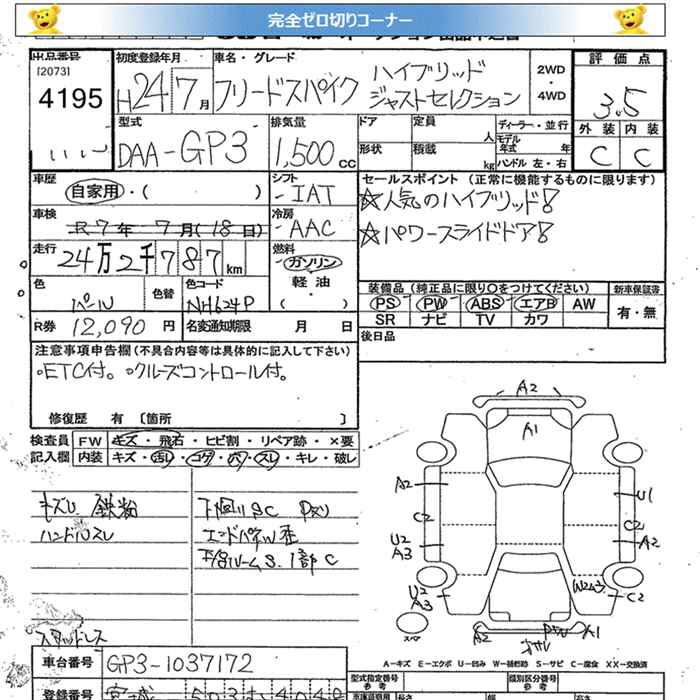 完全ゼロ切りコーナー
出品番号
[2073]
4195
初度登録年月
H24年7月
車名・グレード
フリードスパイク ハイブリッド
ジャストセレクション
2WD
・
4WD
評価点
3.5
外装 内装
C C
型式
DAA-GP3
排気量
1,500cc
ドア 定員 人
形状 積載 kg
ディーラー・並行
モデル年式 年
ハンドル 左・右
車歴
自家用・( )
シフト
IAT
車検
R7年7月(18日)
冷房
AAC
走行
24万2千787km
燃料
ガソリン
軽油
( )
色
パール
色替
色コード
NH624P
R券 12,090円
名変通知期限 月 日
セールスポイント(正常に機能するものに限ります)
☆人気のハイブリッド!
☆パワースライドドア!
装備品(純正品に限り○をつけてください)
PS PW ABS エアB AW
SR ナビ TV カワ
新車保証書
有・無
後日品
注意事項申告欄(不具合内容等は具体的に記入して下さい)
○ETC付。○クルーズコントロール付。
修復歴 有 〔箇所 〕
検査員 FW キズ・飛石・ヒビ割・リペア跡・×要
記入欄 内装 キズ・汚レ・コゲ・穴・スレ・キレ・破レ
キズU 鉄粉
ハンドルスレ
下回りSC Pヌリ
エンドパネルW歪
スタッドレス
A2
A1
A2
U1
C2
C2
U2
A3
A2
U2
A3
C2
スペア
A2
A1
A-キズ E-エクボ U-凹み W-補修跡 S-サビ C-腐食 XX-交換済
車台番号 GP3-1037172
型式指定番号
参考
類別区分番号
参考
登録番号